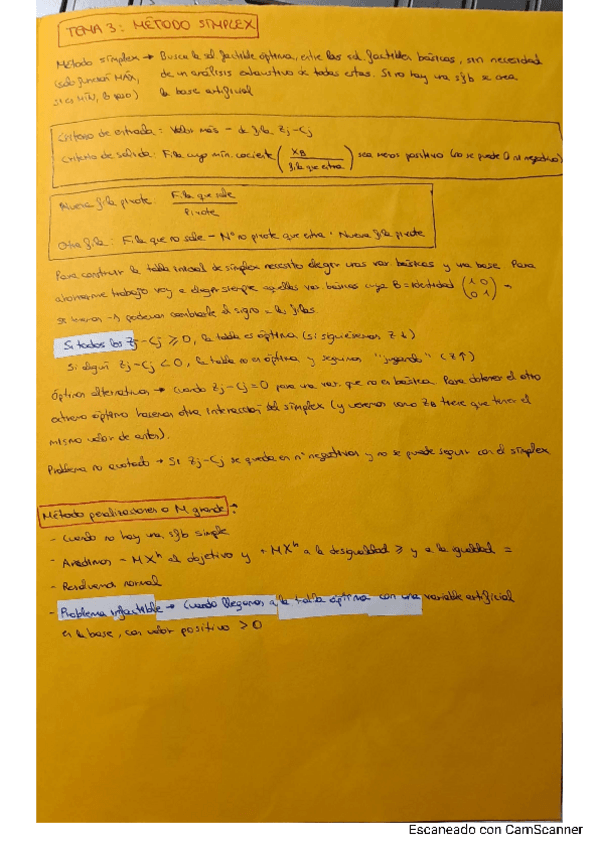 TEMA 3: MÉTODO SIMPLEX
Método simplex → Busca la sol factible óptima, entre las sol. factibles básicas, sin necesidad
(sólo función MÁX, de un análisis exhaustivo de todas estas. Si no hay una sfb se crea
si es MÍN, la base artificial
Criterio de entrada: Valor más - de fila Zj-Cj
Criterio de salida: Fila cuyo mín. cociente (XB / fila que entra) sea menos positivo (no se puede 0 ni negativo)
Nueva fila pivote: Fila que sale / Pivote
Otra fila: Fila que no sale - Nº no pivote que entra · Nueva fila pivote
Para construir la tabla inicial de simplex necesito elegir unas var básicas y una base. Para
ahorrarme trabajo voy a elegir siempre aquellas var. básicas cuya B = identidad (1 0 / 0 1) →
se tienen → podemos cambiarle el signo a las filas.
Si todos los Zj-Cj ≥ 0, la tabla es óptima (si siguiésemos Z ↓)
Si algún Zj-Cj < 0, la tabla no es óptima y seguimos "jugando" (Z↑)
Óptimos alternativos → Cuando Zj-Cj = 0 para una var. que no es básica. Para obtener el otro
extremo óptimo hacemos otra interacción del simplex (y veremos como ZB tiene que tener el
mismo valor de antes).
Problema no acotado → Si Zj-Cj se queda en nº negativos y no se puede seguir con el simplex
Método penalizaciones o M grande:
- Cuando no hay una sfb simple
- Añadimos - MXʰ al objetivo y + MXʰ a la desigualdad ≥ y a la igualdad =
- Resolvemos normal
- Problema infactible → Cuando llegamos a la tabla óptima con una variable artificial
en la base, con valor positivo > 0
Escaneado con CamScanner